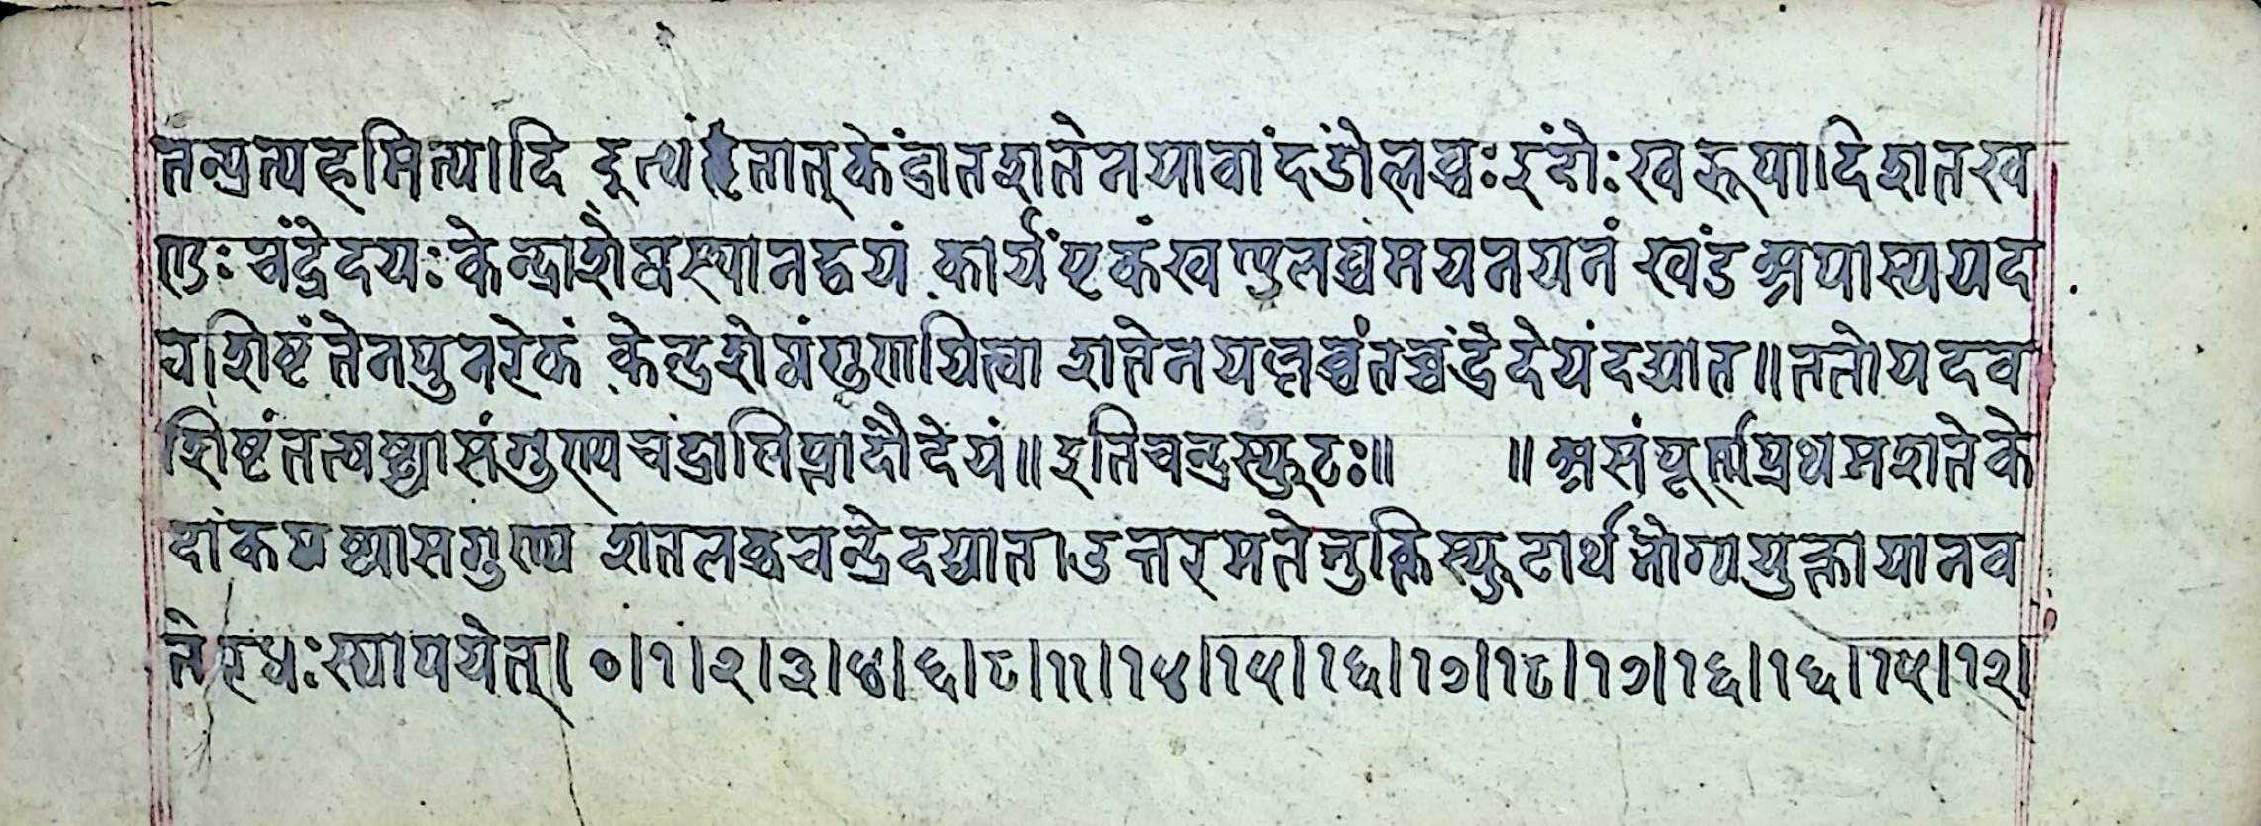 तन्प्रत्यहमित्यादि इत्थं हृतात् केंद्रात शतेन यावांदंडो लब्धः इंदोः खरूपादि शत ख
ण्डः चंद्रे देयः केन्द्रा शेष स्थानद्वयं कार्यं एकं खण्डलब्धमयनयनं खंड अपास्य यद
वशिष्टं तेन पुनरेकं केन्द्रशेषं गुणयित्वा शतेन यल्लब्धं तच्चंद्रे देयं दद्यात ॥ ततो यदव
शिष्टं तत्षष्ट्या संगुण्य चंद्रा लिप्तादौ देयं ॥ इति चन्द्रस्फुटः ॥ ॥ असंपूर्ण प्रथम शते के
दांक षष्ठ्या सगुण्य शत लब्ध चन्द्रे दद्यात । उत्तरमते नुक्ति स्फुटार्थ भोग्य युक्ता यानव
ते रधः स्थापयेत् । ० । १ । २ । ३ । ४ । ६ । ८ । ११ । १४ । १५ । १६ । १७ । १८ । १७ । १६ । १६ । १५ । १२ ।